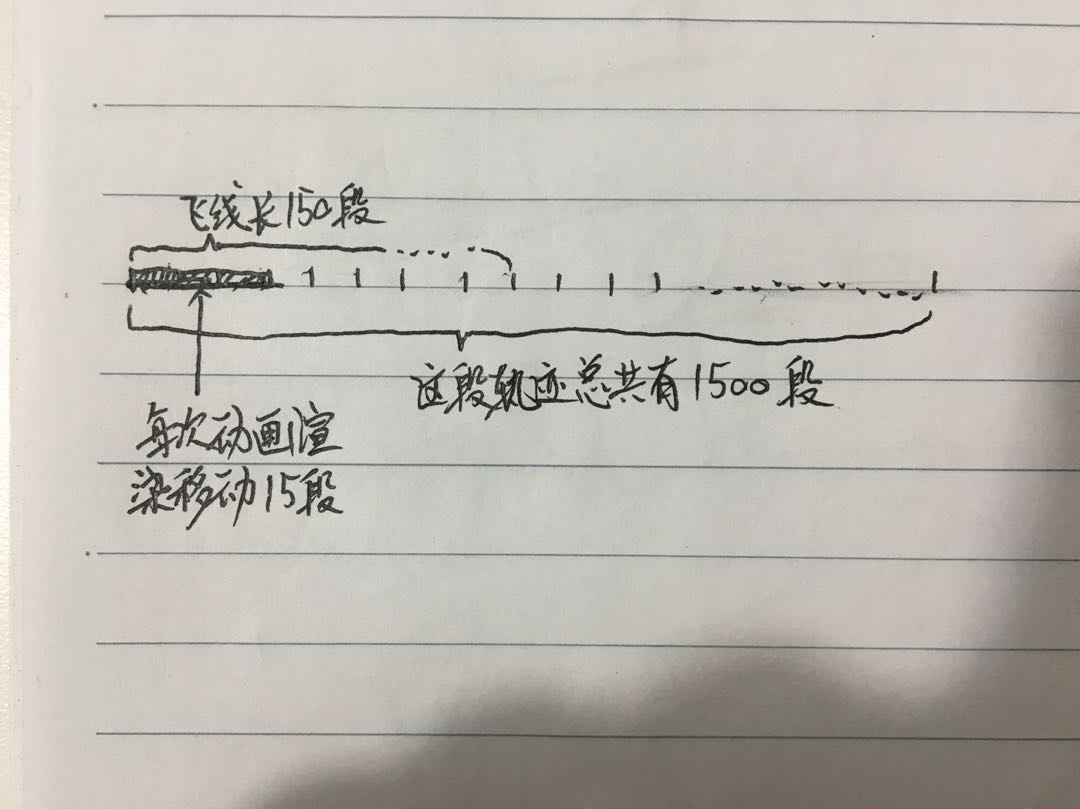 飞线长150段
这段轨迹总共有1500段
每次动画渲
染移动15段